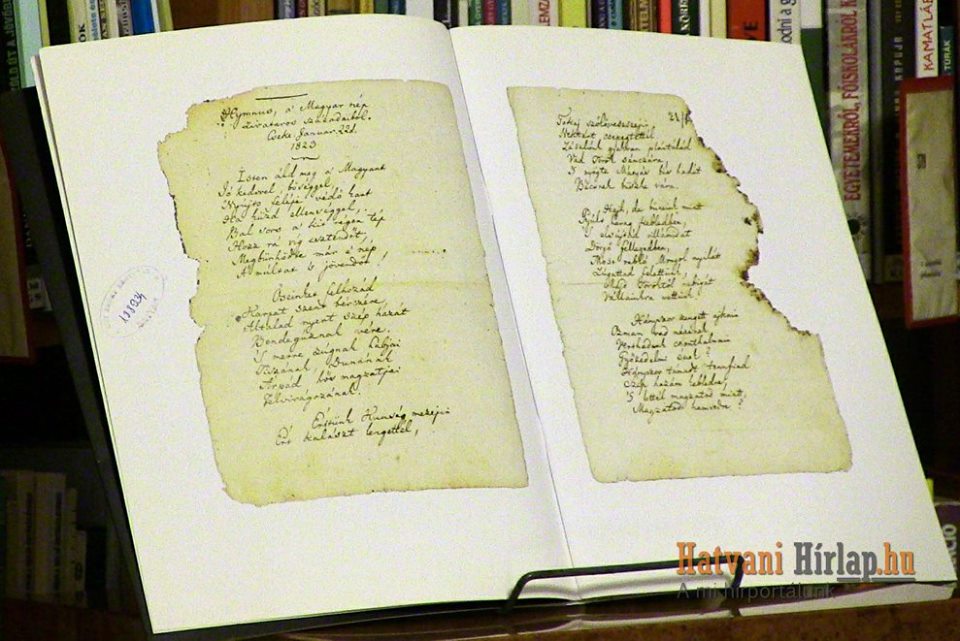 Hymnus, a' Magyar nép
zivataros századaiból.
Cseke Januar. 22d.
1823
Isten áldd meg a' Magyart
Jó kedvvel, bőséggel,
Nyújts feléje védő kart
Ha küzd ellenséggel;
Bal sors a' kit régen tép
Hozz rá víg esztendőt,
Megbünhödte már e' nép
A' múltat 's jövendőt!
Őseinket felhozád
Kárpát szent bérczére,
Általad nyert szép hazát
Bendegúznak vére.
'S merre zúgnak habjai
Tiszának, Dunának
Árpád hős magzatjai
Felvirágozának.
Értünk Kunság mezején
Ért kalászt lengettél,
138934
Tokaj szőlővesszein,
Nektárt csepegtettél
Zászlónk gyakran plántálád
Vad Török sánczára
'S nyögte Mátyás bús hadát
Bécsnek büszke vára.
Hajh, de bűneink miatt
Gyúlt harag kebledben,
'S elsújtád villámidat
Dörgő fellegedben,
Most rabló Mongol nyilát
Zúgattad felettünk,
Majd Töröktől rabigát
Vállainkra vettünk!
Hányszor zengett ajkain
Ozman vad népének
Verthadunk csonthalmain
Győzedelmi ének?
Hányszor támadt tenfiad
Szép hazám kebledre,
'S lettél magzatod miatt,
Magzatod hamvedre?
EGYETEMEKRŐL, FŐISKOLÁKRÓL
KAMATLÁB
TÚRÁK
Hatvani Hírlap.hu
A mi hírportálunk